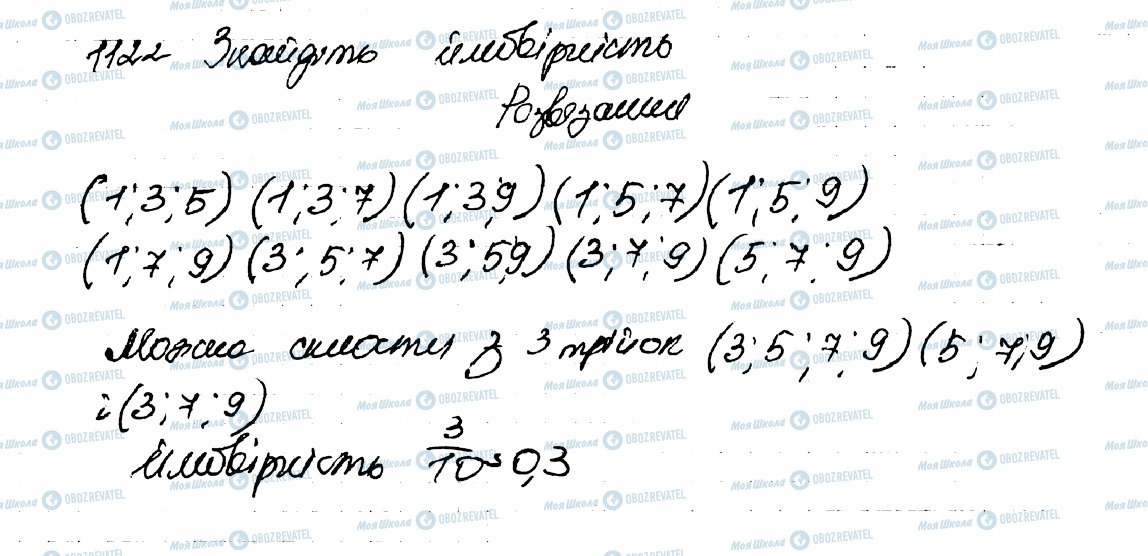 1122 Знайдіть ймовірність
Розвязання
(1;3;5) (1;3;7) (1;3;9) (1;5;7) (1;5;9)
(1;7;9) (3;5;7) (3;5;9) (3;7;9) (5;7;9)
Можна скласти з 3 трійок (3;5;7;9) (5;7;9)
і (3;7;9)
ймовірність 3/10 = 0,3